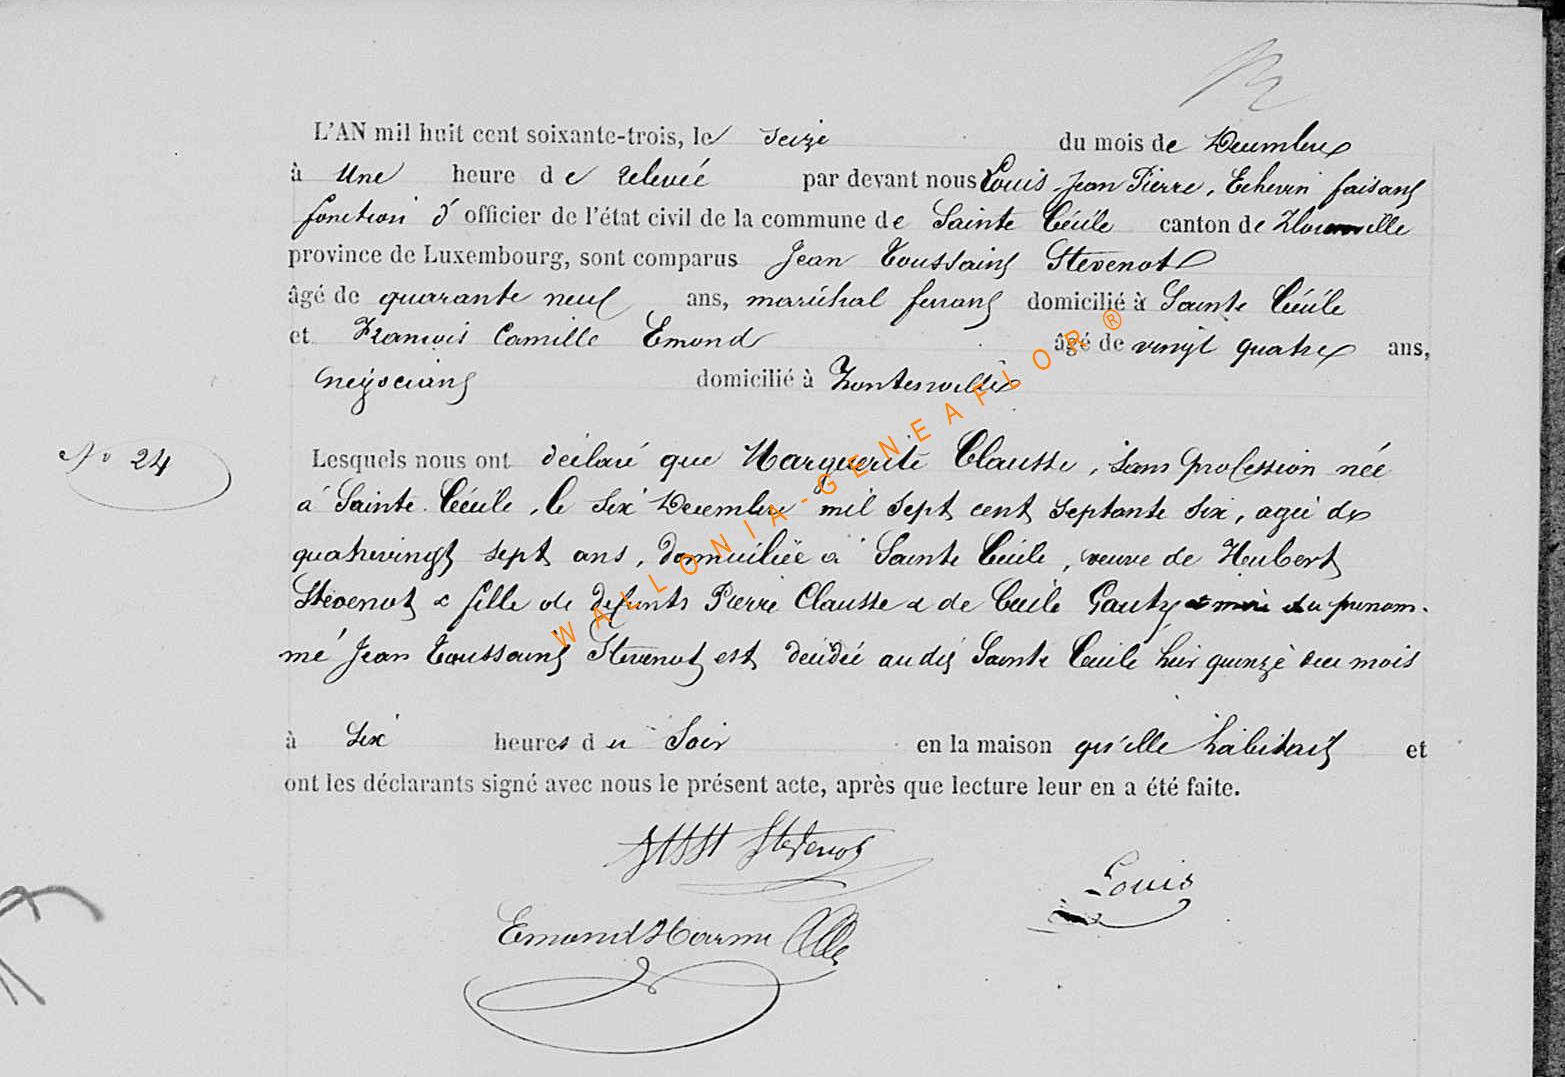 L'AN mil huit cent soixante-trois, le seize du mois de Décembre
à Une heure de relevée par devant nous Louis Jean Pierre, Echevin faisant
fonction d' officier de l'état civil de la commune de Sainte Cécile canton de Florenville
province de Luxembourg, sont comparus Jean Toussaint Stévenot
âgé de quarante neuf ans, maréchal ferrant domicilié à Sainte Cécile
et François Camille Emond âgé de vingt quatre ans,
négociant domicilié à Fontenoille
N° 24
Lesquels nous ont déclaré que Marguerite Clausse, sans profession née
à Sainte Cécile, le six Décembre mil sept cent septante six, agée de
quatrevingt sept ans, domiciliée à Sainte Cécile, veuve de Hubert
Stévenot & fille de défunts Pierre Clausse & de Cécile Gauty et mère du prénom-
mé Jean Toussaint Stévenot est décédée audit Sainte Cécile hier quinze du mois
à six heures du soir en la maison qu'elle habitait et
ont les déclarants signé avec nous le présent acte, après que lecture leur en a été faite.
Stévenot
Louis
Emond
WALLONIA-GENEAFLOR®